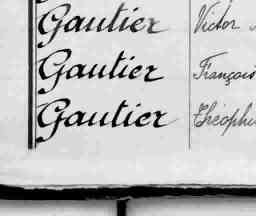 Gautier Victor
Gautier François
Gautier Théophi